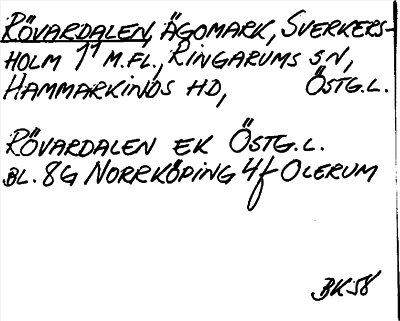 RÖVARDALEN, ÄGOMARK, SVERKERS-
HOLM 1¹ M.FL., RINGARUMS SN,
HAMMARKINDS HD, ÖSTG.L.
RÖVARDALEN EK ÖSTG.L.
BL. 8G NORRKÖPING 4f OLERUM
BK58